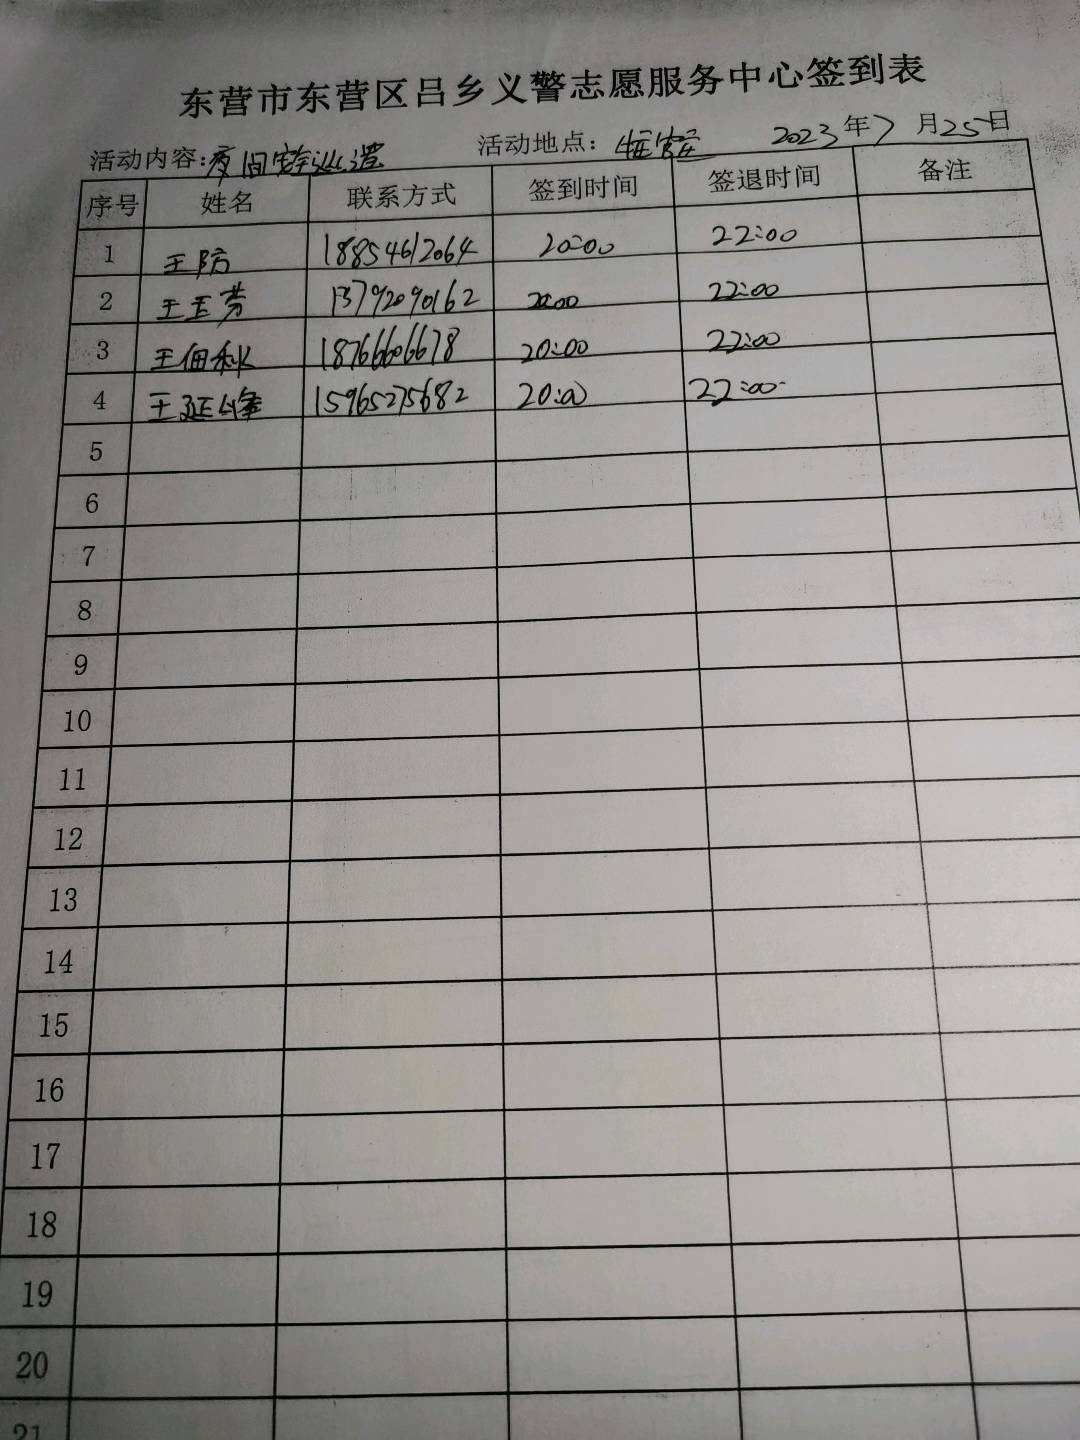 东营市东营区吕乡义警志愿服务中心签到表
活动内容:夜间 巡逻 活动地点: 2023年7月25日
序号 姓名 联系方式 签到时间 签退时间 备注
1 王防 18854612064 20:00 22:00
2 王玉芳 13792090162 20:00 22:00
3 王佃秋 18766606678 20:00 22:00
4 王延峰 15965275682 20:00 22:00
5
6
7
8
9
10
11
12
13
14
15
16
17
18
19
20
21